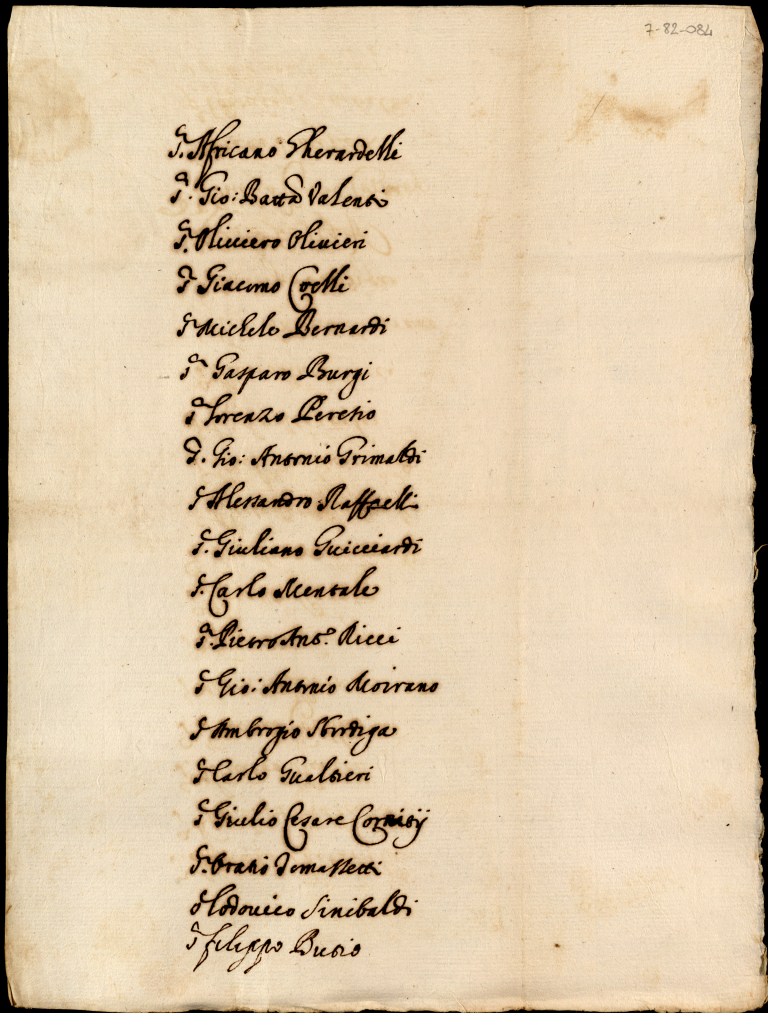 7-82-084
S.r Africano Gherardelli
S.r Gio: Batta Valenti
S.r Oliviero Olivieri
S.r Giacomo Corelli
S.r Michele Bernardi
S.r Gasparo Burgi
S.r Lorenzo Peretio
S.r Gio: Antonio Grimaldi
S.r Alessandro Raffaelli
S.r Giuliano Guicciardi
S.r Carlo Mentale
S.r Pietro Ant.o Ricci
S.r Gio: Antonio Moirano
S.r Ambrogio
S.r Carlo Gualtieri
S.r Giulio Cesare Cornitij
S.r Oratio Tomassetti
S.r Lodovico Sinibaldi
S.r filippo Butio